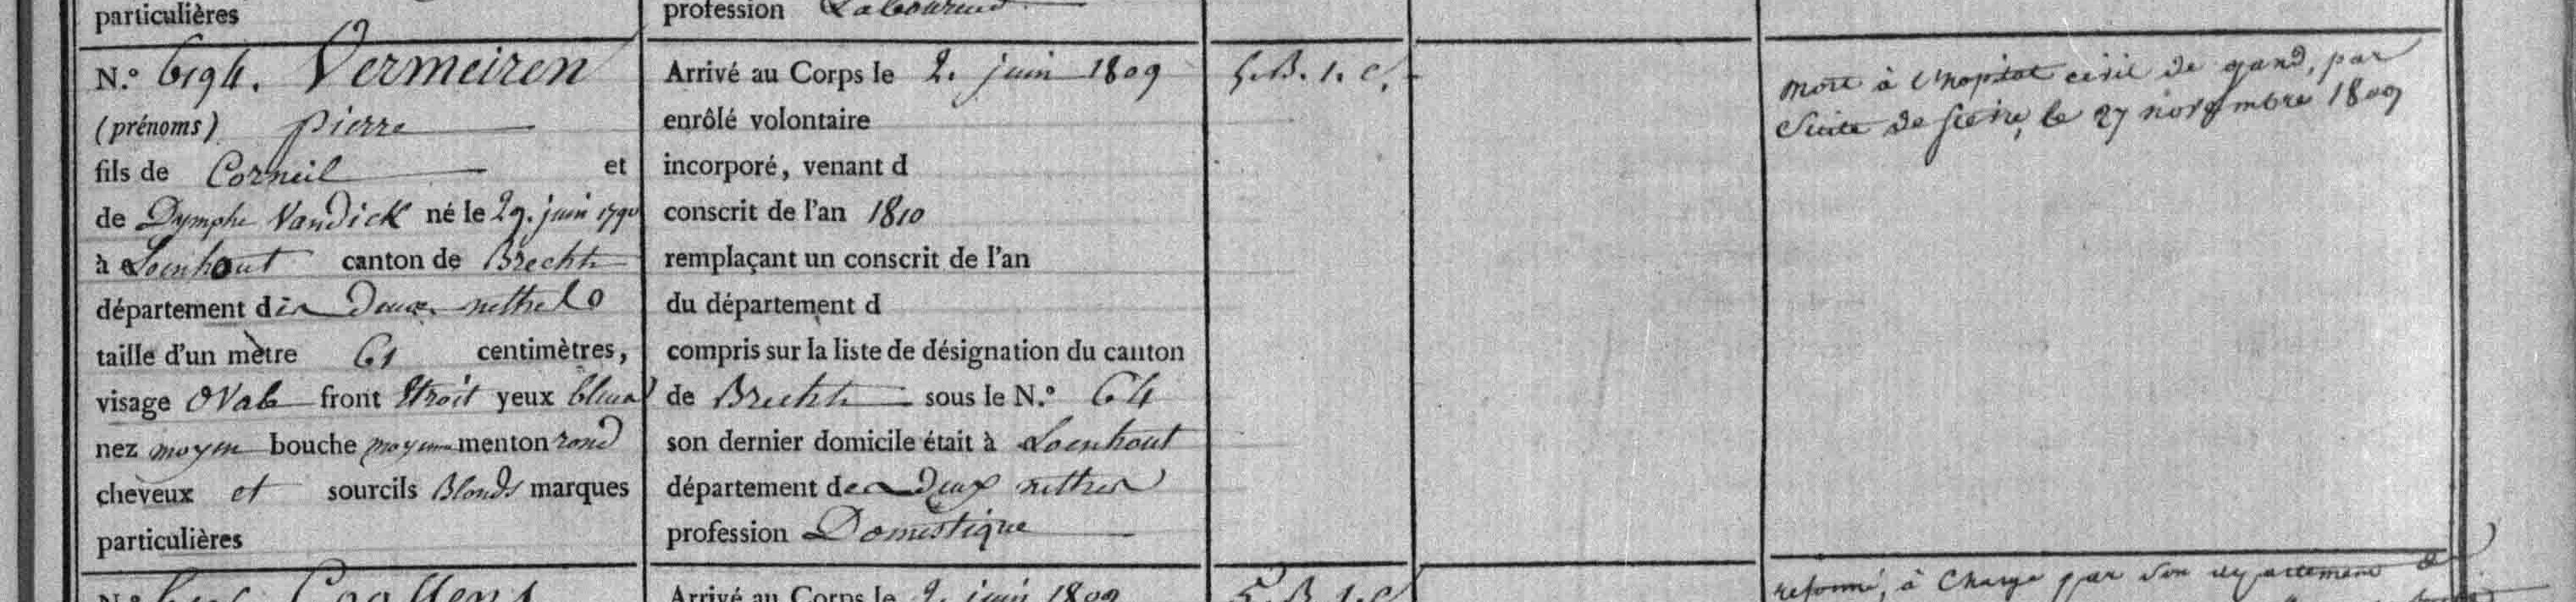 particulières
N.° 6194. Vermeiren
(prénoms) pierre
fils de Corneil et
de Dymphe Vandick né le 29. juin 1790
à Loenhout canton de Brecht
département des Deux nethes
taille d'un mètre 61 centimètres,
visage ovale front Etroit yeux bleus
nez moyen bouche moyenne menton rond
cheveux et sourcils Blonds marques
particulières
profession Laboureur
Arrivé au Corps le 2. juin 1809
enrôlé volontaire
incorporé, venant d
conscrit de l'an 1810
remplaçant un conscrit de l'an
du département d
compris sur la liste de désignation du canton
de Brecht sous le N.° 64
son dernier domicile était à Loenhout
département des Deux nethes
profession Domestique
Arrivé au Corps le 2. juin 1809
5. B. 1. C.
5. B. 1. C
Mort à l'hopital civil de gand, par
Suite de fievre, le 27 novembre 1809
reformé, à Charge par son departement